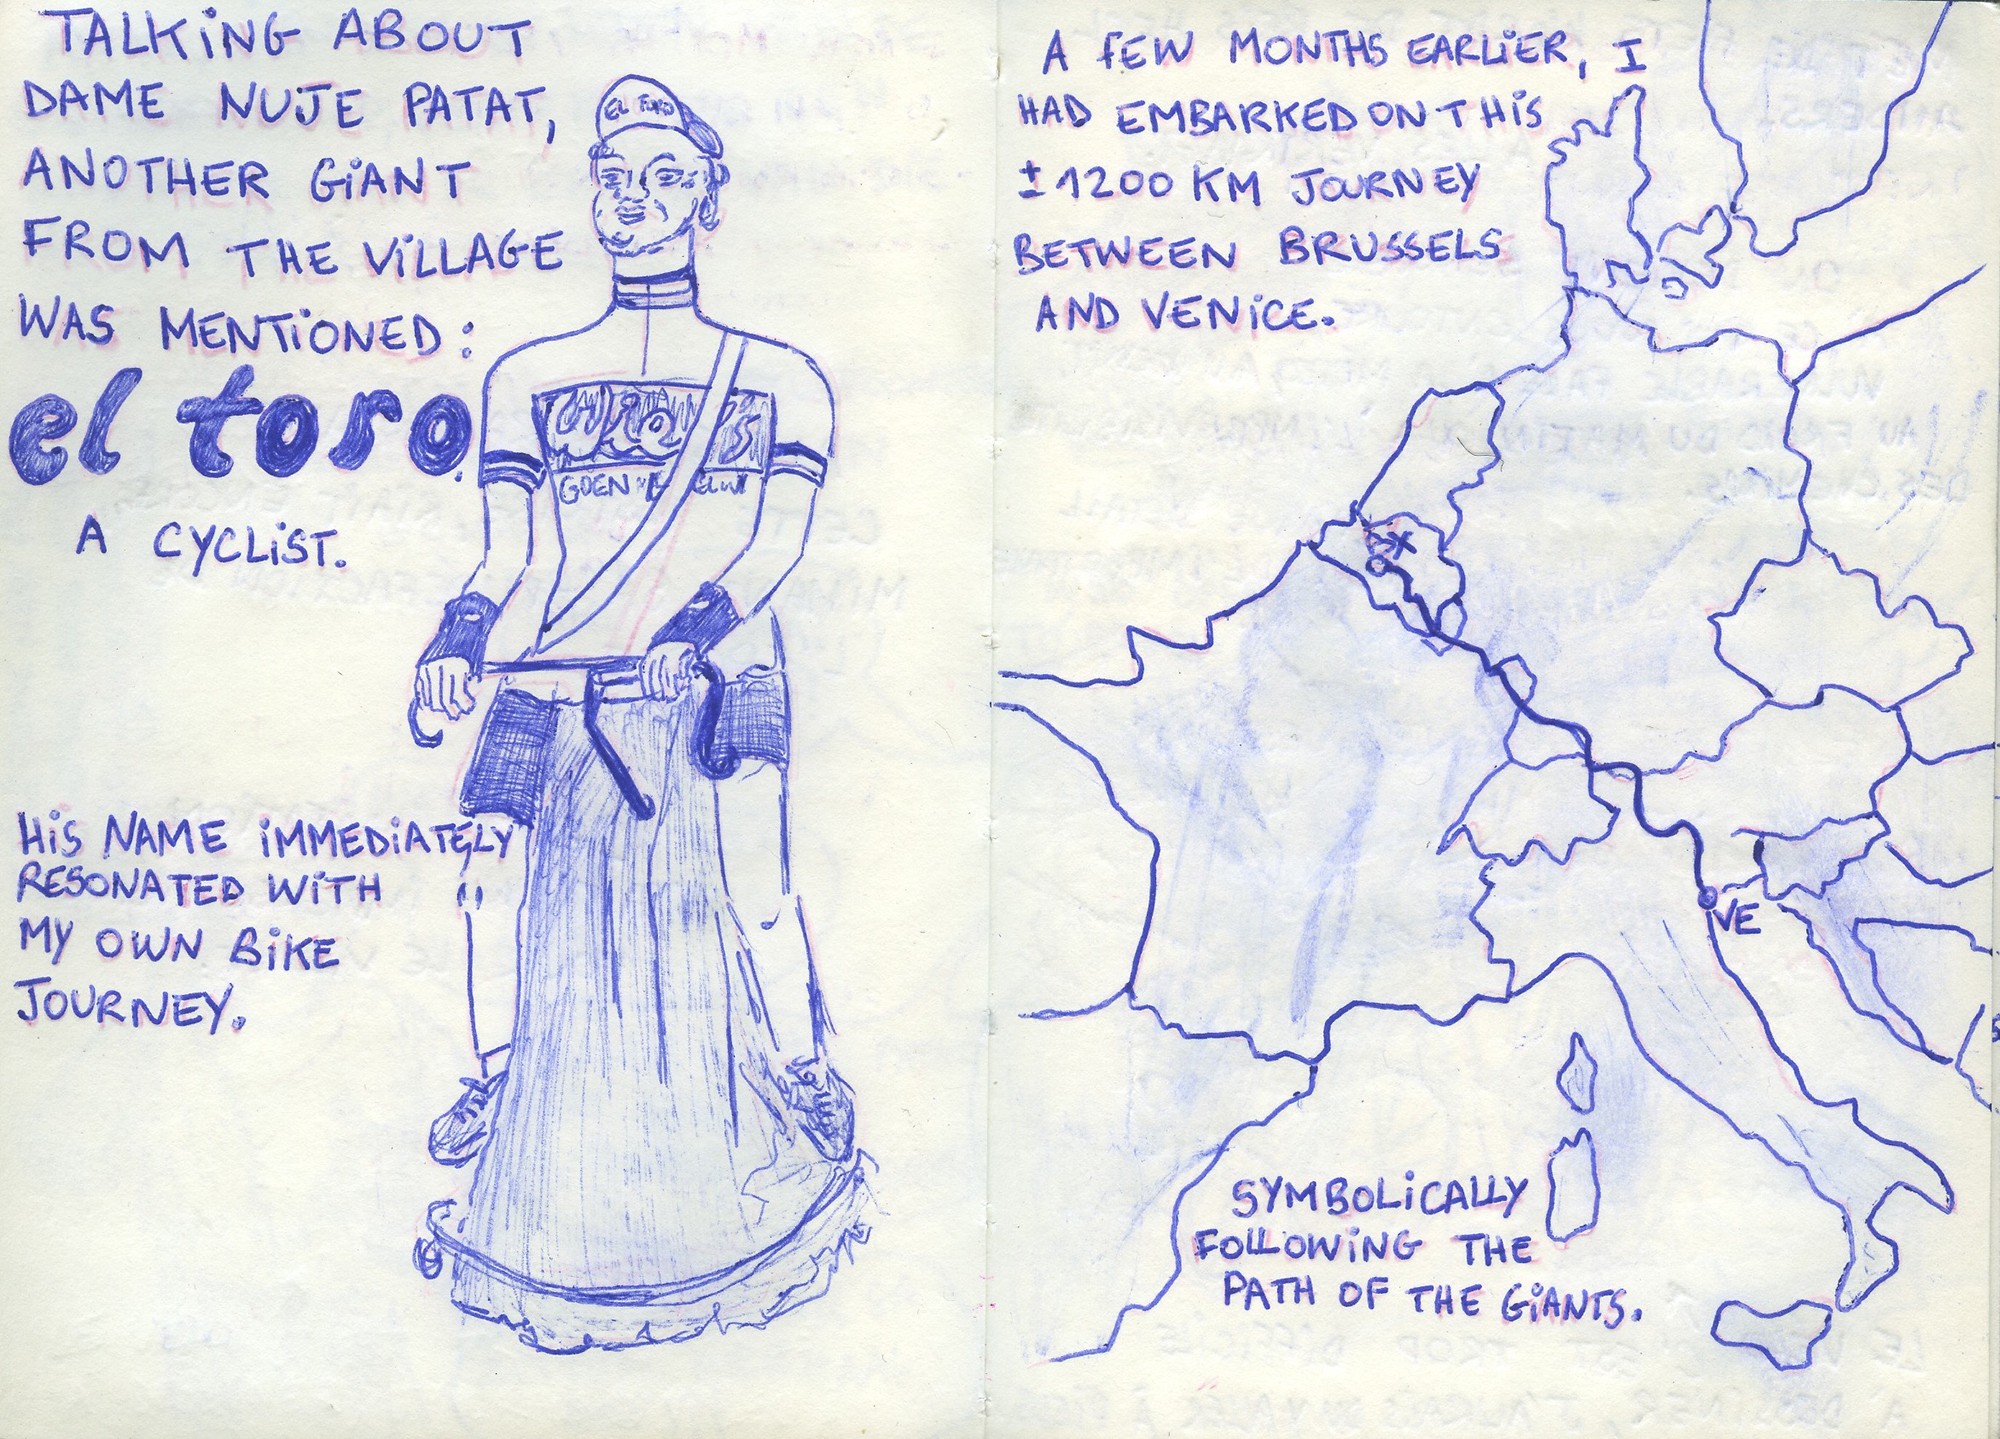 TALKING ABOUT
DAME NUJE PATAT,
ANOTHER GIANT
FROM THE VILLAGE
WAS MENTIONED:
el toro.
A CYCLIST.
HIS NAME IMMEDIATELY
RESONATED WITH
MY OWN BIKE
JOURNEY.
EL TORO
A FEW MONTHS EARLIER, I
HAD EMBARKED ON THIS
± 1200 KM JOURNEY
BETWEEN BRUSSELS
AND VENICE.
VE
SYMBOLICALLY
FOLLOWING THE
PATH OF THE GIANTS.